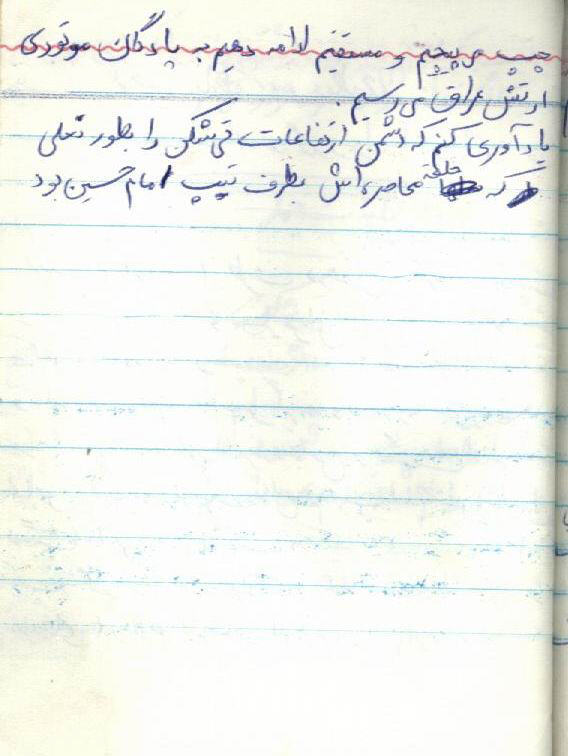 چپ می پیچیم و مستقیم ادامه دهیم به پادگان موتوری
ارتش عراق می رسیم.
یادآوری کنم که دشمن ارتفاعات قمی شکن را بطور نعلی
که حلقه محاصره اش بطرف تیپ امام حسین بود